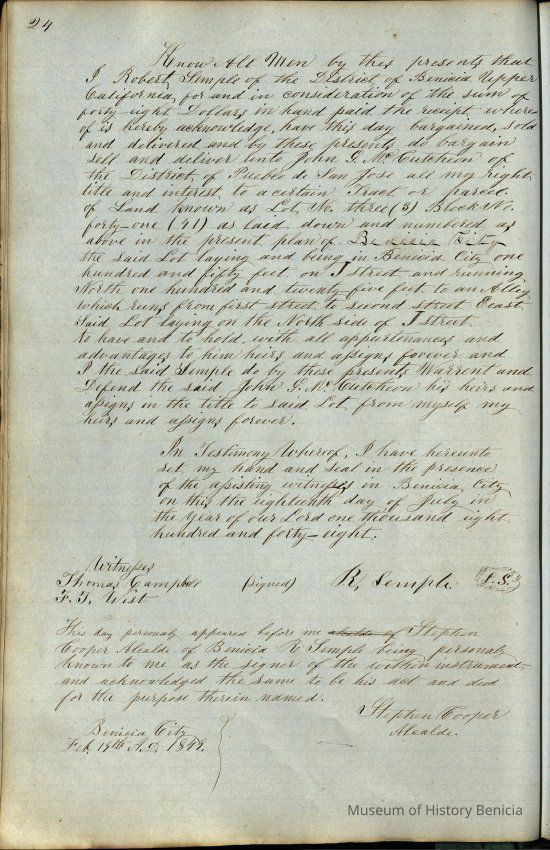 24
Know All Men by thes presents that
I Robert Semple of the District of Benicia Upper
California, for and in consideration of the sum of
forty eight Dollars in hand paid the receipt where
of is hereby acknowledge, have this day bargained, sold
and delivered and by these presents do bargain
sell and deliver unto John G. McCutcheon of
the District of Pueblo de San Jose all my right
title and interest to a certain Tract or parcel
of Land known as Lot No. three (3) Block No.
forty-one (41) as laid down and numbered as
above in the present plan of Benicia City
the said Lot laying and being in Benicia City one
hundred and fifty feet on J street and running
North one hundred and twenty five feet to an Alley
which runs from first street to second street East
Said Lot laying on the North side of J street
to have and to hold with all appurtonances and
advantages to him heirs and assigns forever and
I the said Semple do by these presents Warrent and
Defend the said John G. McCutcheon his heirs and
assigns in the title to said Lot from myself my
heirs and assigns forever.
In Testimony Whereof, I have hereunto
set my hand and seal in the presence
of the assisting witnesses in Benicia City
on this the eighteenth day of July in
the Year of our Lord one thousand eight
hundred and forty-eight.
Witnesses
Thomas Campbell (signed) R. Semple L.S.
F. J. West
This day personaly appeared before me alcalde of Stephen
Cooper Alcalde of Benicia R Semple being personaly
known to me as the signer of the within instrument
and acknowledged the same to be his act and deed
for the purpose therein named.
Stephen Cooper
Alcalde.
Benicia City
Feb. 19th A.D. 1849.
Museum of History Benicia